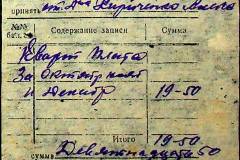 принять от Ана Кириченко
№№ бал. сч. Содержание записи Сумма
Кварт плата
За октяб нояб
и декабр 19-50
Итого 19-50
сумма Девятнадцать 50